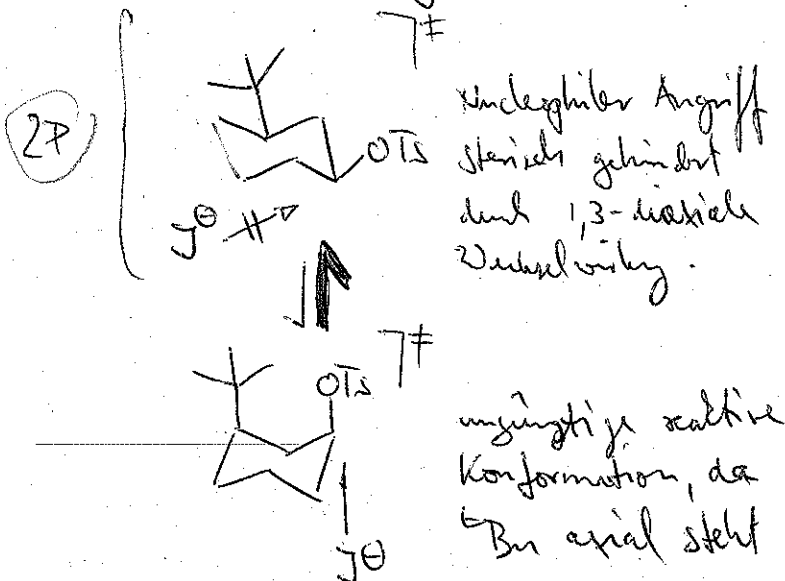 ⌉‡
2P
OTs
J⊖
Nucleophiler Angriff
sterisch gehindert
durch 1,3-diaxiale
Wechselwirkung.
⌉‡
OTs
J⊖
ungünstige reaktive
Konformation, da
tBu axial steht